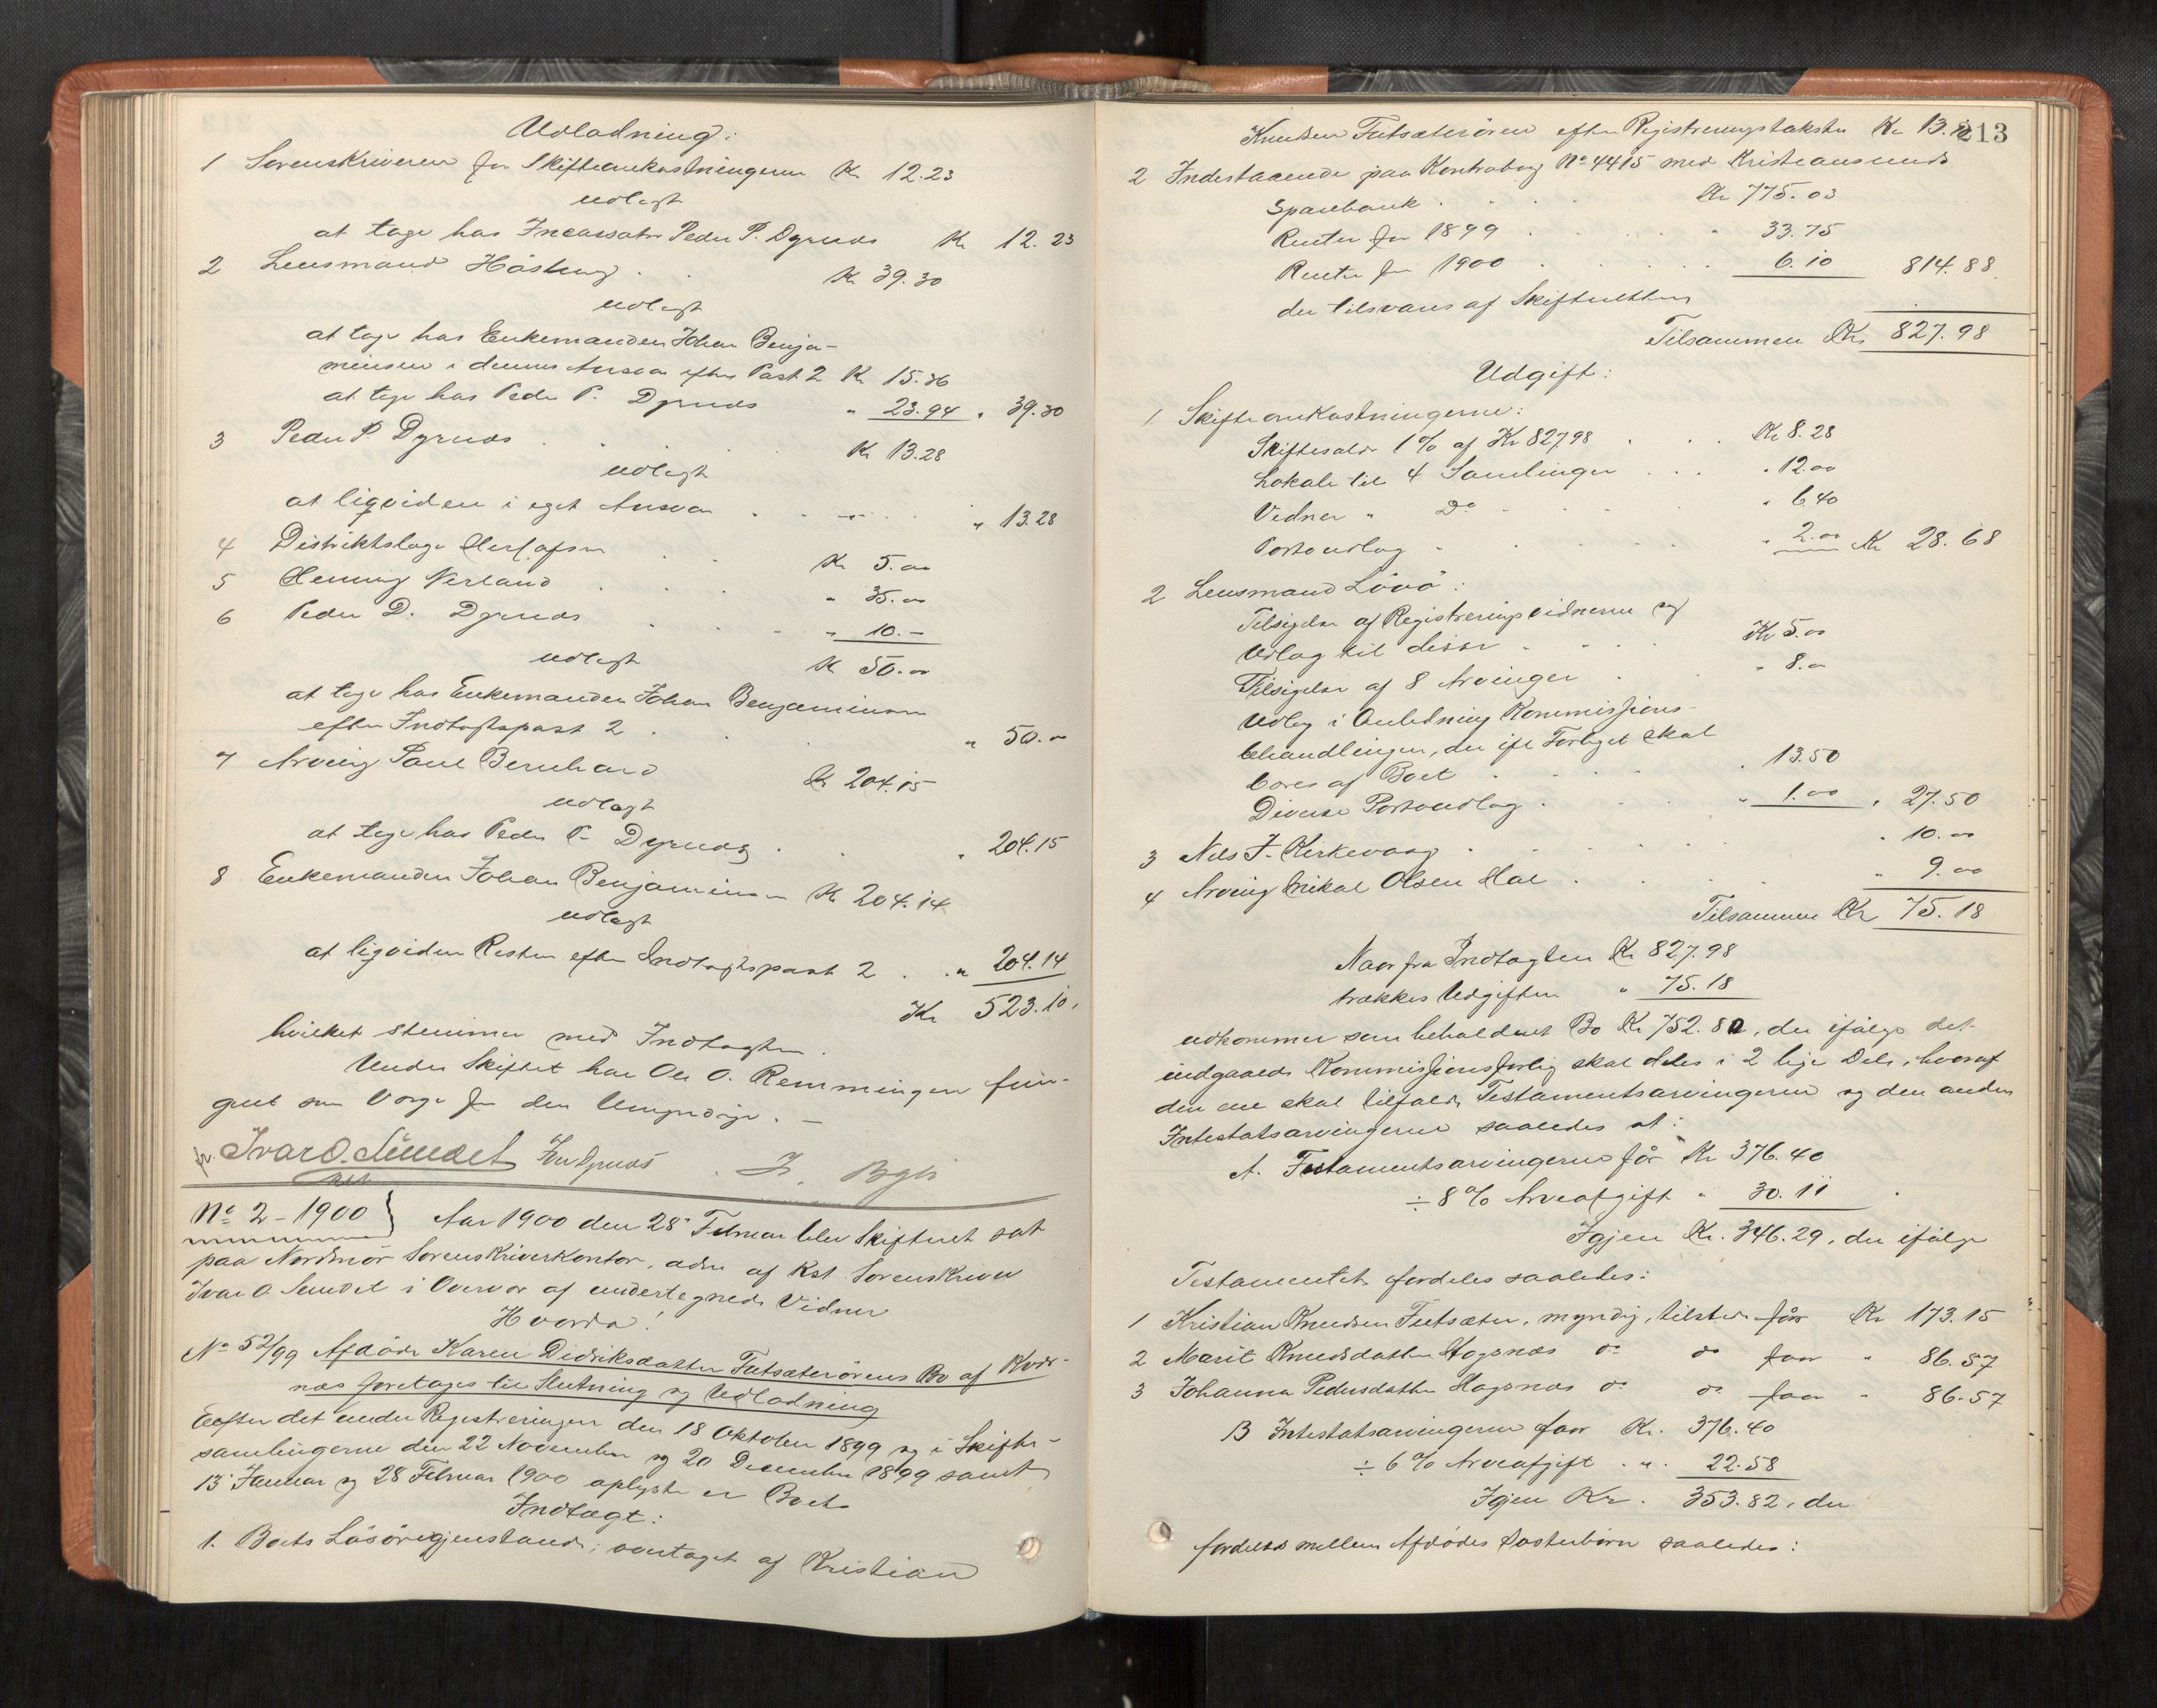 Udlodning:
1 Sorenskriveren for Skifteomkostningerne Kr 12.23
udlagt
at tage hos Incassator Peder P. Dyrnds Kr 12.23
2 Lensmand . . Kr 39.30
udlagt
at tage hos Enkemanden Johan Benja-
minsen i dennes Ansvar efter Post 2 Kr 15.36
at tage hos Peder P. Dyrnds " 23.94 " 39.30
3 Peder P Dyrnds . . . Kr 13.28
udlagt
at liqvidere i eget Ansvar . . . . " 13.28
4 Distriktslæge . . Kr 5.00
5 Henning Verland . . . " 35.00
6 Peder D. Dyrnds . . . " 10.-
udlagt Kr 50.00
at tage hos Enkemanden Johan Benjaminsen
efter Indtægtspost 2 . . " 50.00
7 Arving Paul Bernhard Kr 204.15
udlagt
at tage hos Peder P. Dyrnds . . " 204.15
8 Enkemanden Johan Benjaminsen Kr 204.14
udlagt
at liqvidere Resten efter Indtægtspost 2 . . " 204.14
Kr 523.10.
hvilket stemmer med Indtægten.
Under Skiftet har Ole O. Remmingen fun-
geret som Værge for den Umyndige. -
Ivar O. Sundet
No 2 - 1900 } Aar 1900 den 28' Februar blev Skifteret sat
paa Nordmør Sorenskriverkontor, adm af Kst. Sorenskriver
Ivar O. Sundet i Overvær af undertegnede Vidner
Hvorda!
No 52/99 Afdøde Karen Didriksdatter Futsæterørens Bo af Kvær-
næs foretages til Slutning og Udlodning
Efter det under Registreringen den 18 Oktober 1899 og i Skifte-
samlingerne den 22 November og 20 December 1899 samt
13' Januar og 28 Februar 1900 oplyste er Boets
Indtægt:
1. Boets Løsøregjenstande; overtaget af Kristian
213
Knudsen Futsæterøren efter Registreringstaksten Kr 13.10
2 Indestaaende paa Kontrabog No 4415 med Kristiansunds
Sparebank . . . Kr 775.03
Renter for 1899 . . . " 33.75
Renter for 1900 . . . 6.10 814.88
der tilsvares af Skifteretten
Tilsammen Kr 827.98
Udgift:
1 Skifteomkostningerne:
Skiftesalær 1% af Kr 827.98 . . . Kr 8.28
Lokale til 4 Samlinger . . . " 12.00
Vidner " Do . . . " 6.40
Portoudlæg . . . " 2.00 Kr 28.68
2 Lensmand Løvø:
Tilsigelse af Registreringsvidnerne og
Udlæg til disse . . . Kr 5.00
Tilsigelse af 8 Arvinger . " 8.00
Udlæg i Anledning Kommissions-
behandlingen, der ifl Forliget skal
bæres af Boet . . . " 13.50
Diverse Portoudlæg . . . " 1.00 " 27.50
3 Nils J. Kirkevaag . . . " 10.00
4 Arving Mikal Olsen Hal . . . " 9.00
Tilsammen Kr 75.18
Naar fra Indtægten Kr 827.98
trækkes Udgiften " 75.18
udkommer som beholdent Bo Kr 752.80, der ifølge det
indgaaede Kommissionsforlig skal deles i 2 lige Dele, hvoraf
den ene skal tilfalde Testamentsarvingerne og den anden
Intestatsarvingerne saaledes at:
A. Testamentsarvingerne får Kr 376.40
÷ 8% Arveafgift " 30.11
Igjen Kr. 346.29, der ifølge
Testamentet fordeles saaledes:
1 Kristian Knudsen Futsæter, myndig, tilstede får Kr 173.15
2 Marit Knudsdatter Hagsnæs do do faar " 86.57
3 Johanna Pedersdatter Hagsnæs do do faar " 86.57
B Intestatsarvingerne faar Kr. 376.40
÷ 6% Arveafgift . " . 22.58
Igjen Kr. 353.82, der
fordeles mellem Afdødes Søsterbørn saaledes: